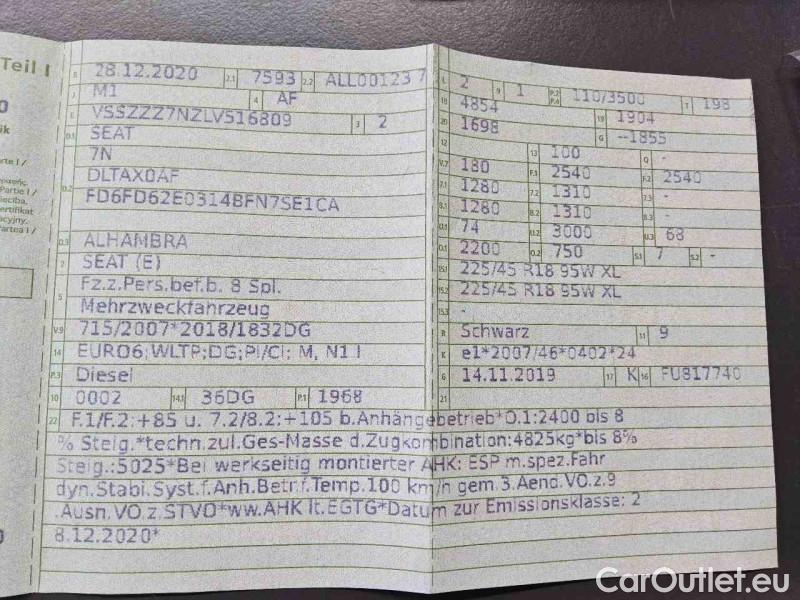 Teil I
B 28.12.2020 2.1 7593 2.2 ALL00123 7
J M1 4 AF
E VSSZZZ7NZLV516809 3 2
D.1 SEAT
7N
D.2 DLTAX0AF
FD6FD62E0314BFN7SE1CA
D.3 ALHAMBRA
2 SEAT (E)
5 Fz.z.Pers.bef.b. 8 Spl.
Mehrzweckfahrzeug
V.9 715/2007*2018/1832DG
14 EURO6;WLTP;DG;PI/CI; M, N1 I
P.3 Diesel
10 0002 14.1 36DG P.1 1968
L 2 9 1 P.2 P.4 110/3500 T 198
18 4854 19 1904
20 1698 G --1855
12 13 100 Q -
V.7 180 F.1 2540 F.2 2540
7.1 1280 7.2 1310 7.3 -
8.1 1280 8.2 1310 8.3 -
U.1 74 U.2 3000 U.3 68
O.1 2200 O.2 750 S.1 7 S.2 -
15.1 225/45 R18 95W XL
15.2 225/45 R18 95W XL
15.3 -
R Schwarz 11 9
K e1*2007/46*0402*24
6 14.11.2019 17 K 16 FU817740
21
22 F.1/F.2:+85 u. 7.2/8.2:+105 b.Anhängebetrieb*O.1:2400 bis 8
% Steig.*techn.zul.Ges-Masse d.Zugkombination:4825kg*bis 8%
Steig.:5025*Bei werkseitig montierter AHK: ESP m.spez.Fahr
dyn.Stabi.Syst.f.Anh.Betr.f.Temp.100 km/h gem.3.Aend.VO.z.9
.Ausn.VO.z.STVO*ww.AHK lt.EGTG*Datum zur Emissionsklasse: 2
8.12.2020*
CarOutlet.eu